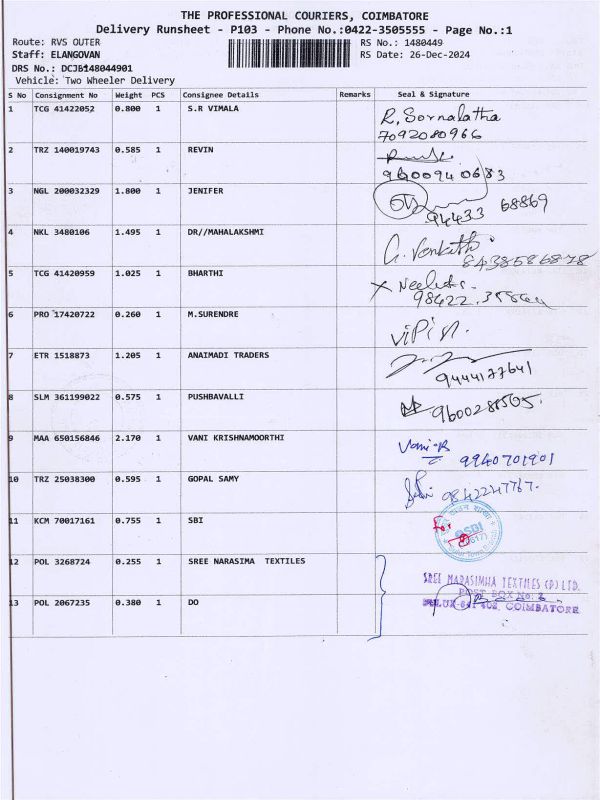 THE PROFESSIONAL COURIERS, COIMBATORE
Delivery Runsheet - P103 - Phone No.:0422-3505555 - Page No.:1
Route: RVS OUTER RS No.: 1480449
Staff: ELANGOVAN RS Date: 26-Dec-2024
DRS No.: DCJB148044901
Vehicle: Two Wheeler Delivery
S No Consignment No Weight PCS Consignee Details Remarks Seal & Signature
1 TCG 41422052 0.800 1 S.R VIMALA R. Sornalatha
7092080966
2 TRZ 140019743 0.585 1 REVIN
9600940683
3 NGL 200032329 1.800 1 JENIFER
94433 68869
4 NKL 3480106 1.495 1 DR//MAHALAKSHMI G. Venkath
8438586878
5 TCG 41420959 1.025 1 BHARTHI
98422
6 PRO 17420722 0.260 1 M.SURENDRE Vipin.
7 ETR 1518873 1.205 1 ANAIMADI TRADERS
9444177641
8 SLM 361199022 0.575 1 PUSHBAVALLI 9600288505.
9 MAA 650156846 2.170 1 VANI KRISHNAMOORTHI Vani-R
9940701901
10 TRZ 25038300 0.595 1 GOPAL SAMY 9842247767.
11 KCM 70017161 0.755 1 SBI For
SBI
12 POL 3268724 0.255 1 SREE NARASIMA TEXTILES
SREE NARASIMHA TEXTILES (P) LTD.
POST BOX No: 2
13 POL 2067235 0.380 1 DO 641 402, COIMBATORE